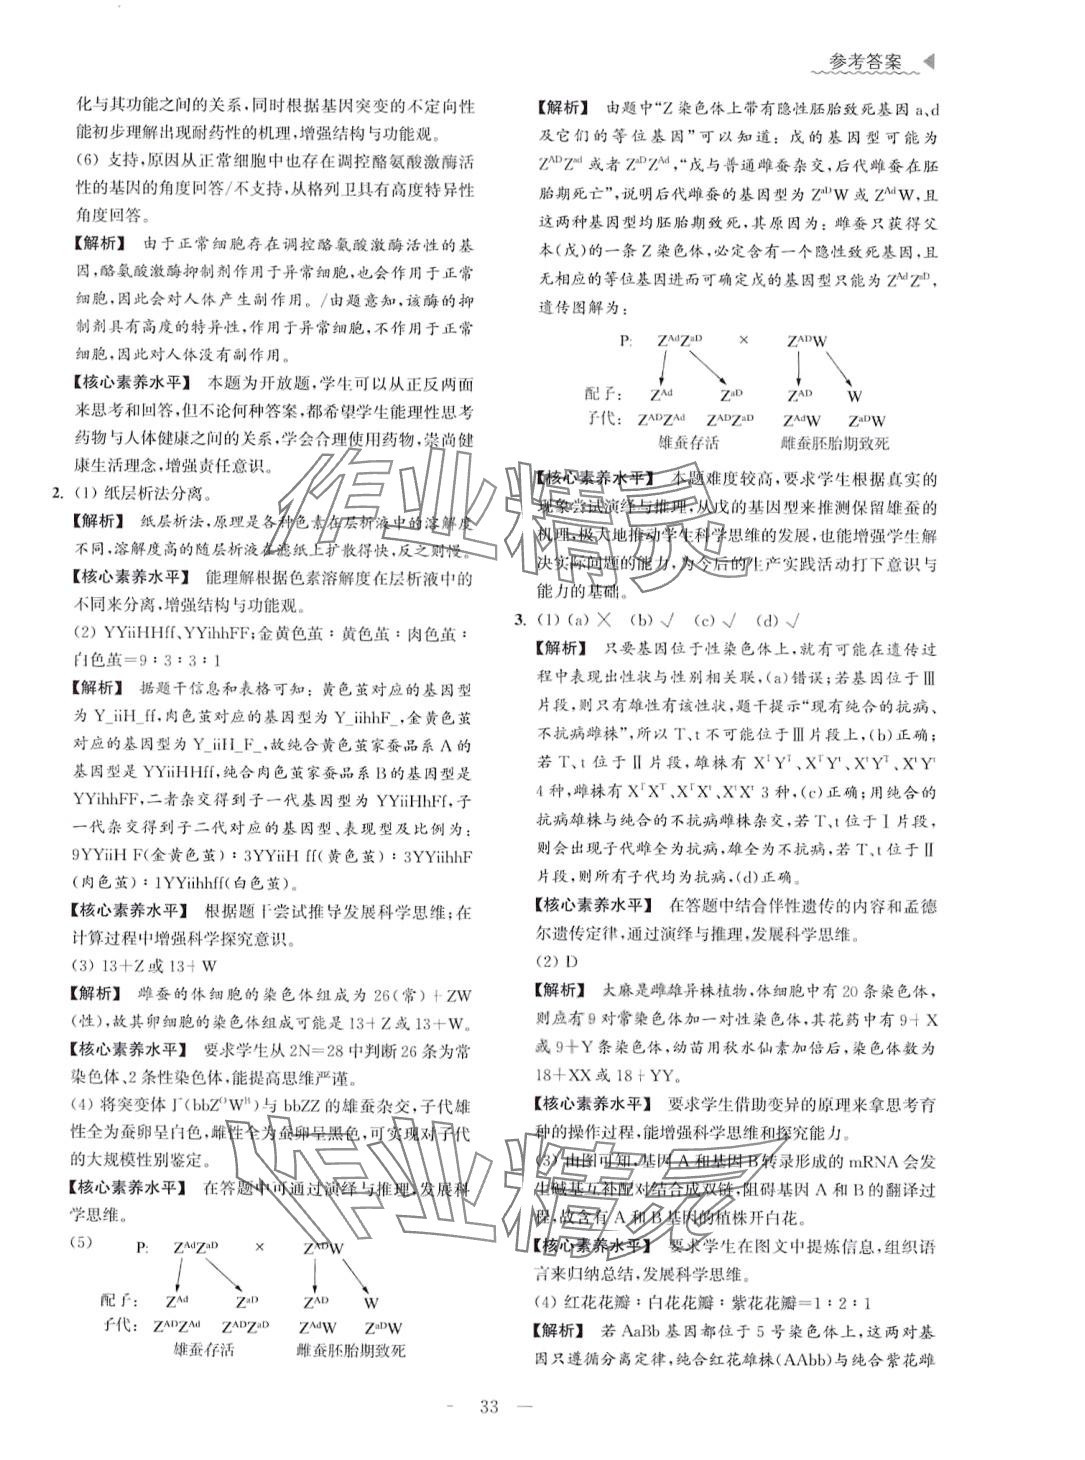 参考答案
化与其功能之间的关系,同时根据基因突变的不定向性
能初步理解出现耐药性的机理,增强结构与功能观。
(6) 支持,原因从正常细胞中也存在调控酪氨酸激酶活
性的基因的角度回答/不支持,从格列卫具有高度特异性
角度回答。
【解析】 由于正常细胞存在调控酪氨酸激酶活性的基
因,酪氨酸激酶抑制剂作用于异常细胞,也会作用于正常
细胞,因此会对人体产生副作用。/由题意知,该酶的抑
制剂具有高度的特异性,作用于异常细胞,不作用于正常
细胞,因此对人体没有副作用。
【核心素养水平】 本题为开放题,学生可以从正反两面
来思考和回答,但不论何种答案,都希望学生能理性思考
药物与人体健康之间的关系,学会合理使用药物,崇尚健
康生活理念,增强责任意识。
2. (1) 纸层析法分离。
【解析】 纸层析法,原理是各种色素在层析液中的溶解度
不同,溶解度高的随层析液在滤纸上扩散得快,反之则慢。
【核心素养水平】 能理解根据色素溶解度在层析液中的
不同来分离,增强结构与功能观。
(2) YYiiHHff、YYihhFF;金黄色茧∶黄色茧∶肉色茧∶
白色茧=9∶3∶3∶1
【解析】 据题干信息和表格可知:黄色茧对应的基因型
为 Y_iiH_ff,肉色茧对应的基因型为 Y_iihhF_,金黄色茧
对应的基因型为 Y_iiH_F_,故纯合黄色茧家蚕品系 A 的
基因型是 YYiiHHff,纯合肉色茧家蚕品系 B 的基因型是
YYihhFF,二者杂交得到子一代基因型为 YYiiHhFf,子
一代杂交得到子二代对应的基因型、表现型及比例为:
9YYiiH F(金黄色茧)∶3YYiiH ff(黄色茧)∶3YYiihhF
(肉色茧)∶1YYiihhff(白色茧)。
【核心素养水平】 根据题干尝试推导发展科学思维;在
计算过程中增强科学探究意识。
(3) 13+Z 或 13+W
【解析】 雌蚕的体细胞的染色体组成为 26(常)+ZW
(性),故其卵细胞的染色体组成可能是 13+Z 或 13+W。
【核心素养水平】 要求学生从 2N=28 中判断 26 条为常
染色体、2 条性染色体,能提高思维严谨。
(4) 将突变体丁(bbZᴼWᴮ)与 bbZZ 的雄蚕杂交,子代雄
性全为蚕卵呈白色,雌性全为蚕卵呈黑色,可实现对子代
的大规模性别鉴定。
【核心素养水平】 在答题中可通过演绎与推理,发展科
学思维。
(5) P: Z^Ad Z^aD × Z^AD W
配子: Z^Ad Z^aD Z^AD W
子代: Z^AD Z^Ad Z^AD Z^aD Z^Ad W Z^aD W
雄蚕存活 雌蚕胚胎期致死
【解析】 由题中“Z 染色体上带有隐性胚胎致死基因 a、d
及它们的等位基因”可以知道:戊的基因型可能为
Z^AD Z^ad 或者 Z^aD Z^Ad,“戊与普通雌蚕杂交,后代雌蚕在胚
胎期死亡”,说明后代雌蚕的基因型为 Z^aD W 或 Z^Ad W,且
这两种基因型均胚胎期致死,其原因为:雌蚕只获得父
本(戊)的一条 Z 染色体,必定含有一个隐性致死基因,且
无相应的等位基因进而可确定戊的基因型只能为 Z^Ad Z^aD,
遗传图解为:
P: Z^Ad Z^aD × Z^AD W
配子: Z^Ad Z^aD Z^AD W
子代: Z^AD Z^Ad Z^AD Z^aD Z^Ad W Z^aD W
雄蚕存活 雌蚕胚胎期致死
【核心素养水平】 本题难度较高,要求学生根据真实的
现象尝试演绎与推理,从戊的基因型来推测保留雄蚕的
机理,极大地推动学生科学思维的发展,也能增强学生解
决实际问题的能力,为今后的生产实践活动打下意识与
能力的基础。
3. (1) (a) ╳ (b) √ (c) √ (d) √
【解析】 只要基因位于性染色体上,就有可能在遗传过
程中表现出性状与性别相关联,(a)错误;若基因位于Ⅲ
片段,则只有雄性有该性状,题干提示“现有纯合的抗病、
不抗病雌株”,所以 T、t 不可能位于Ⅲ片段上,(b)正确;
若 T、t 位于Ⅱ片段,雄株有 X^T Y^T、X^T Y^t、X^t Y^T、X^t Y^t
4 种,雌株有 X^T X^T、X^T X^t、X^t X^t 3 种,(c)正确;用纯合的
抗病雄株与纯合的不抗病雌株杂交,若 T、t 位于Ⅰ片段,
则会出现子代雌全为抗病,雄全为不抗病,若 T、t 位于Ⅱ
片段,则所有子代均为抗病,(d)正确。
【核心素养水平】 在答题中结合伴性遗传的内容和孟德
尔遗传定律,通过演绎与推理,发展科学思维。
(2) D
【解析】 大麻是雌雄异株植物,体细胞中有 20 条染色体,
则应有 9 对常染色体加一对性染色体,其花药中有 9+X
或 9+Y 条染色体,幼苗用秋水仙素加倍后,染色体数为
18+XX 或 18+YY。
【核心素养水平】 要求学生借助变异的原理来拿思考育
种的操作过程,能增强科学思维和探究能力。
(3) 由图可知,基因 A 和基因 B 转录形成的 mRNA 会发
生碱基互补配对结合成双链,阻碍基因 A 和 B 的翻译过
程,故含有 A 和 B 基因的植株开白花。
【核心素养水平】 要求学生在图文中提炼信息,组织语
言来归纳总结,发展科学思维。
(4) 红花花瓣∶白花花瓣∶紫花花瓣=1∶2∶1
【解析】 若 AaBb 基因都位于 5 号染色体上,这两对基
因只遵循分离定律,纯合红花雄株(AAbb)与纯合紫花雌
- 33 —
作业精灵
作业精灵